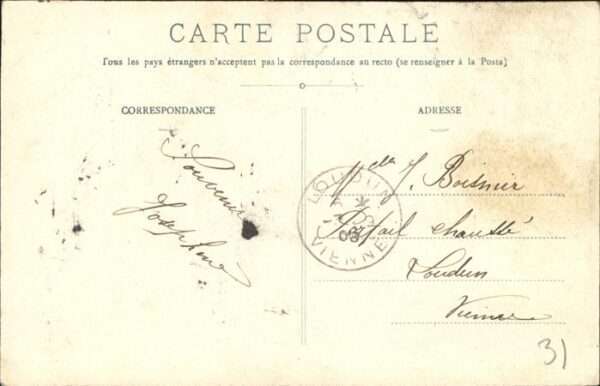 CARTE POSTALE
Tous les pays étrangers n'acceptent pas la correspondance au recto (se renseigner à la Poste)
CORRESPONDANCE
ADRESSE
Souvenir
Joséphine
LOUDUN
VIENNE
Melle J. Boisnier
Portail chaussé
Loudun
Vienne
31